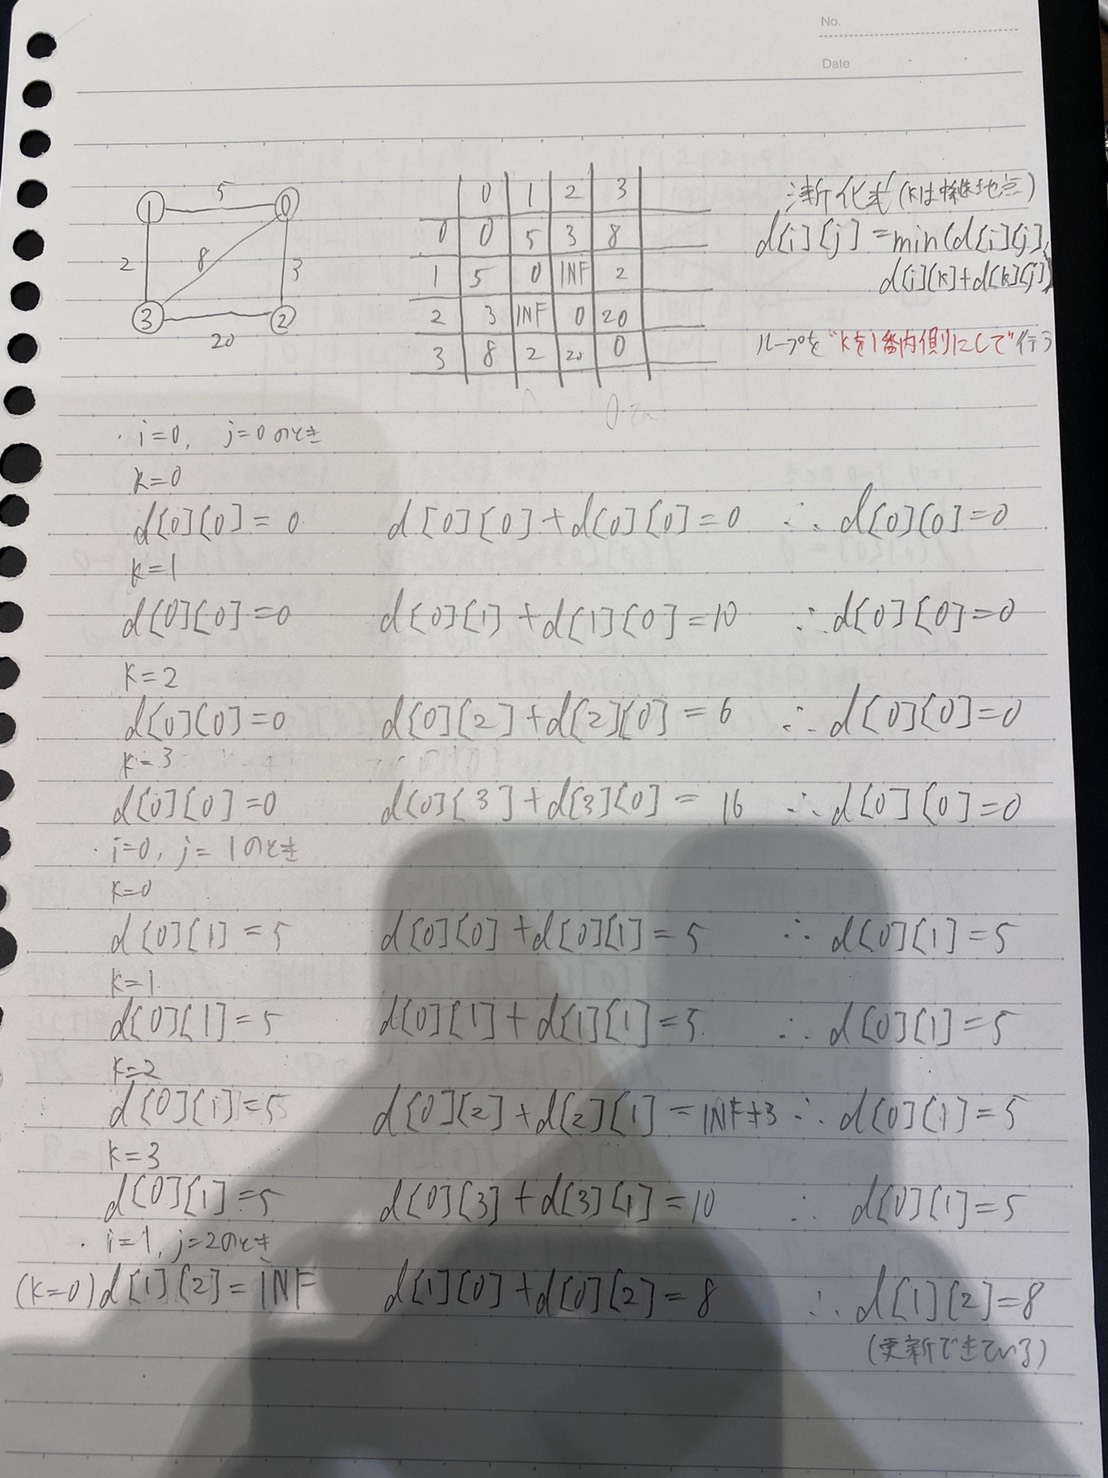 No.
Date
5
1 0
2 8 3
3 2
20
0 1 2 3
0 0 5 3 8
1 5 0 INF 2
2 3 INF 0 20
3 8 2 20 0
漸化式(kは経地点)
d[i][j]=min(d[i][j],
d[i][k]+d[k][j])
ループを"kを1番内側にして"行う
・i=0, j=0のとき
k=0
d[0][0]=0 d[0][0]+d[0][0]=0 ∴d[0][0]=0
k=1
d[0][0]=0 d[0][1]+d[1][0]=10 ∴d[0][0]=0
k=2
d[0][0]=0 d[0][2]+d[2][0]=6 ∴d[0][0]=0
k=3
d[0][0]=0 d[0][3]+d[3][0]=16 ∴d[0][0]=0
・i=0, j=1のとき
k=0
d[0][1]=5 d[0][0]+d[0][1]=5 ∴d[0][1]=5
k=1
d[0][1]=5 d[0][1]+d[1][1]=5 ∴d[0][1]=5
k=2
d[0][1]=5 d[0][2]+d[2][1]=INF+3 ∴d[0][1]=5
k=3
d[0][1]=5 d[0][3]+d[3][1]=10 ∴d[0][1]=5
・i=1, j=2のとき
(k=0)d[1][2]=INF d[1][0]+d[0][2]=8 ∴d[1][2]=8
(更新できている)